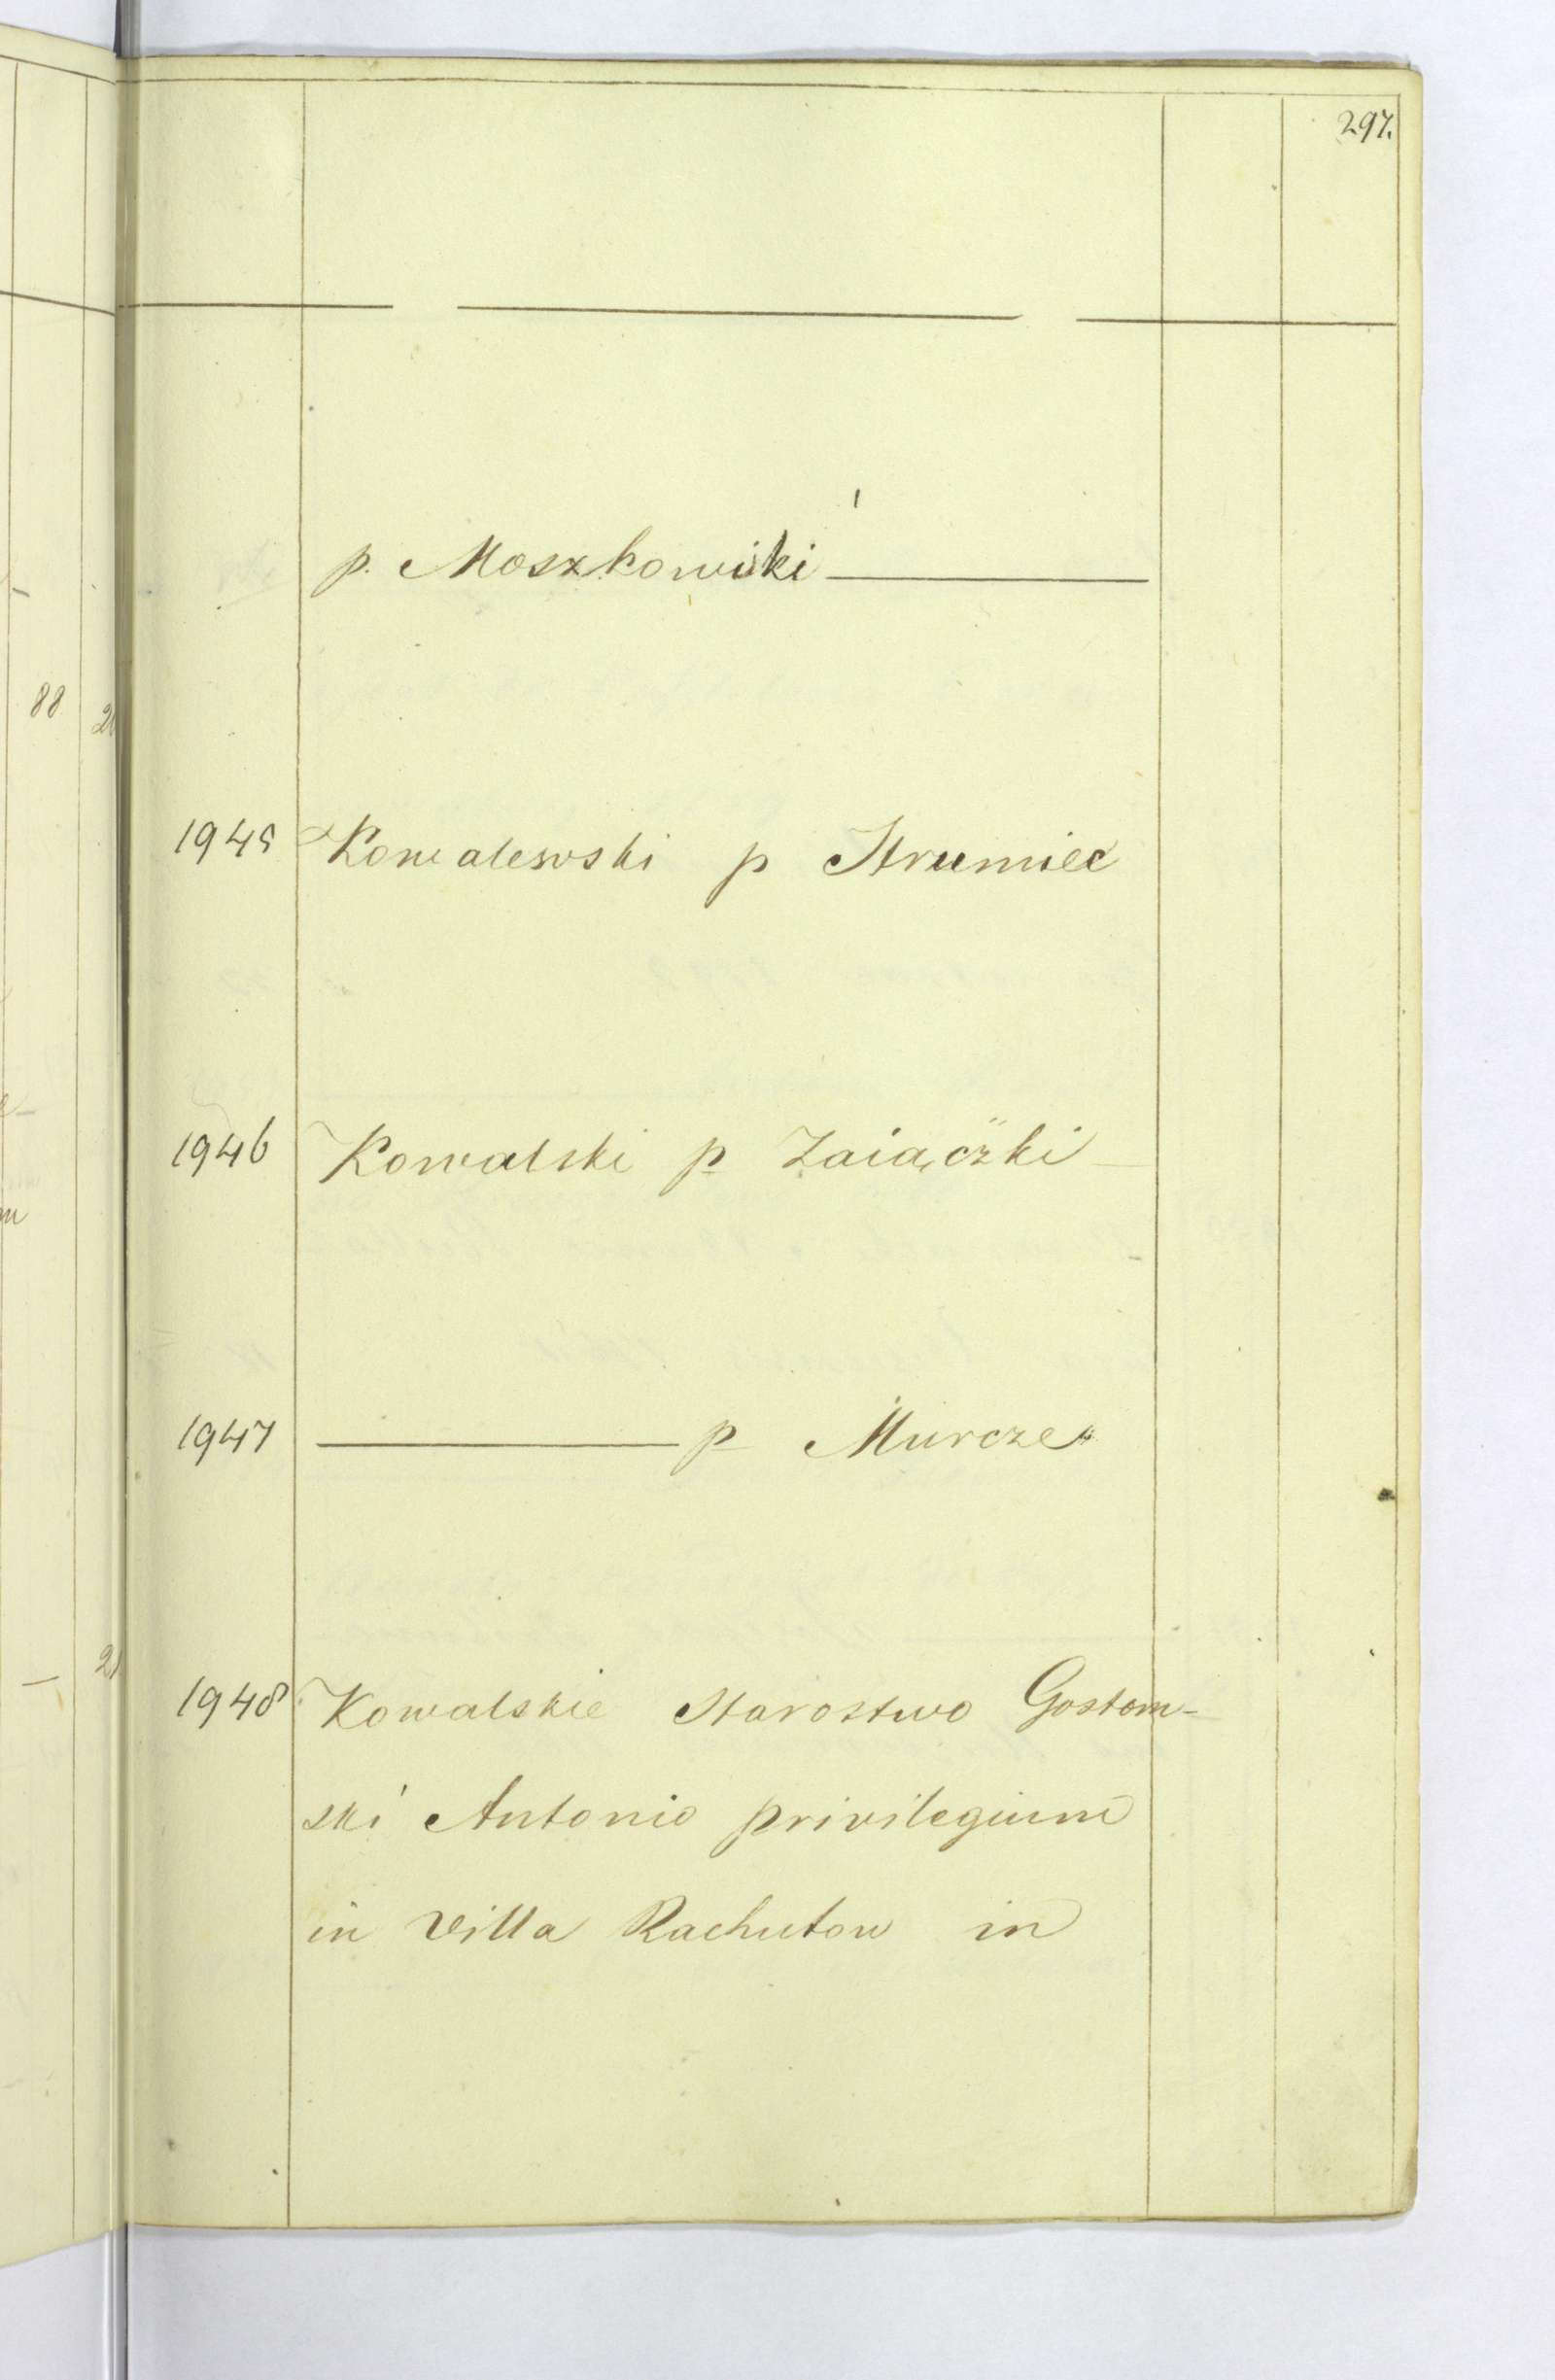 297.
p. Moszkowski
1945 Kowalewski p Strumiec
1946 Kowalski p Zaiączki
1947 p Murcze
1948 Kowalskie Starostwo Gostom-
ski Antonio privilegium
in Villa Rachutow in
88